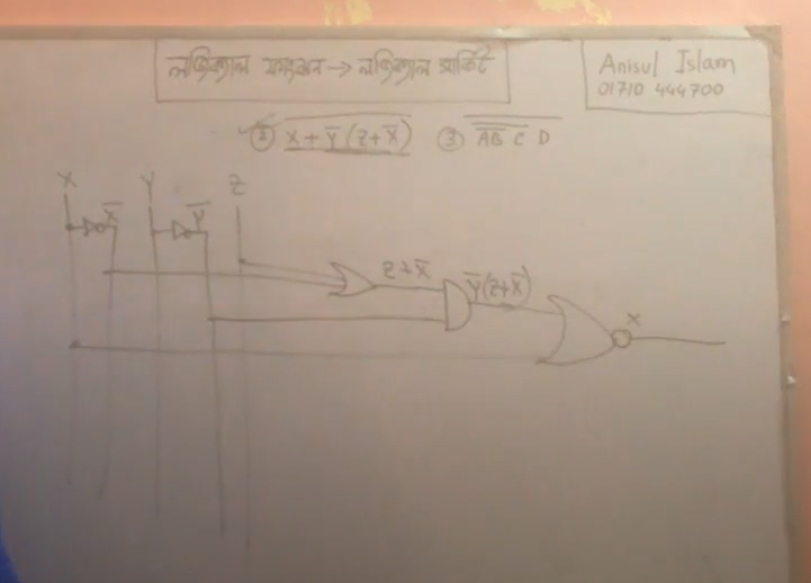 লজিক্যাল ফাংশন → লজিক্যাল সার্কিট
Anisul Islam
01710 444700
② X + Y̅ (Z + X̅) ③ A̅B̅ C̅ D
X X̅ Y Y̅ Z
Z+X̅
Y̅(Z+X̅)
X